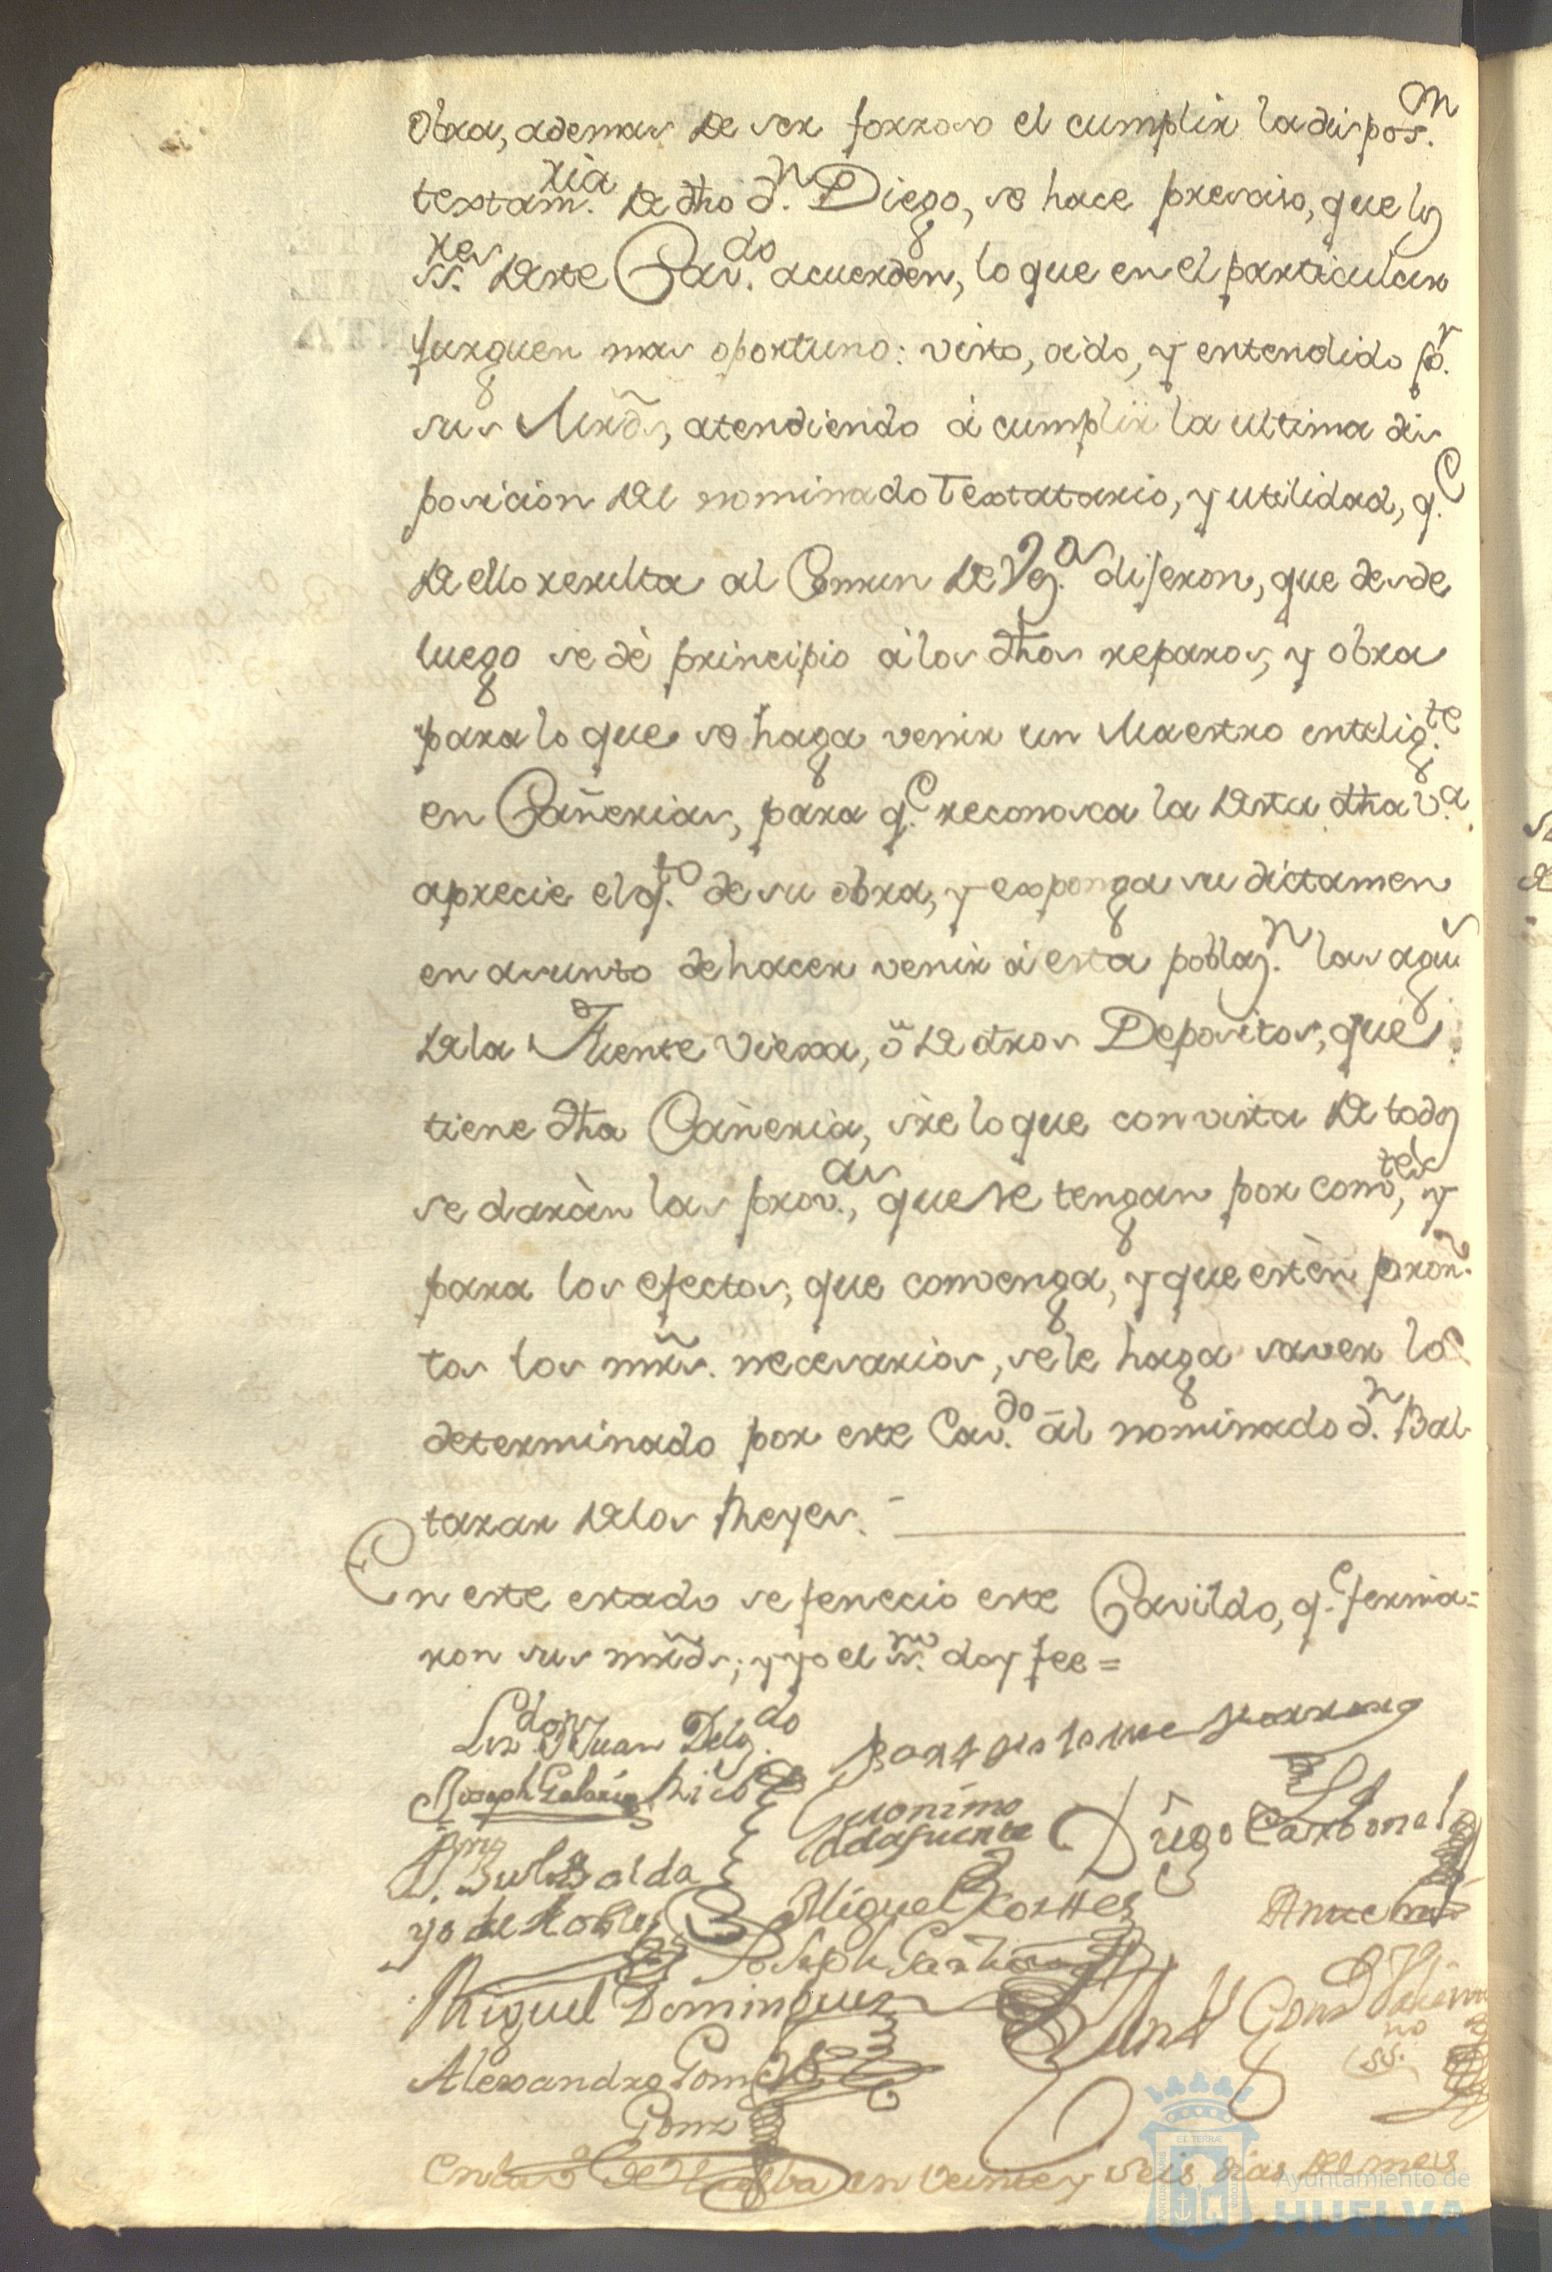 Obra, ademas de ser forzoso el cumplir la dispos.n
textam.ria de dho d.n Diego, se hace presiso, que los
ss.res deste Cav.do acuerden, lo que en el particular
jusguen mas oportuno: visto, oido, y entendido p.r
sus Mrãds, atendiendo á cumplir la ultima dis
posicion del nominado Textatario, y utilidad, q.e
de ello resulta al Comun de Vez.os dijeron, que desde
luego se dè principio á los dhos reparos, y obra
para lo que se haga venir un Maestro intelig.te
en Cañerias, para q.e reconosca la desta dha v.a
aprecie el q.to de su obra, y exponga su dictamen
en asunto de hacer venir á esta poblaz.n las aguas
de la Fuente Viexa, ö de otros Depositos, que
tiene dha Cañeria, sre lo que con vista de todo
se daràn las prov.as, que se tengan por conv.tes, y
para los efectos, que convenga, y que estèn pron-
tos los mrs. necesarios, se le haga saver lo
determinado por este Cav.do ál nominado d.n Bal
tazar de los Reyes.
En este estado se fenecio este Cavildo, q.e firma=
ron sus mrds; y yo el ss.no doy fee =
Liz.do dn Juan Delg.do
Joseph Gabriel Rico
Geronimo
de la fuente
Diego Carbonel
yo de Robles
Miguel Cortes
Ante mi
Joseph Garzia
Miguel Dominguez
Alexandro Gomez
Gonz
ss.no
En la v.a de Huelba en veinte y seis dias del mes
Ayuntamiento de
HUELVA